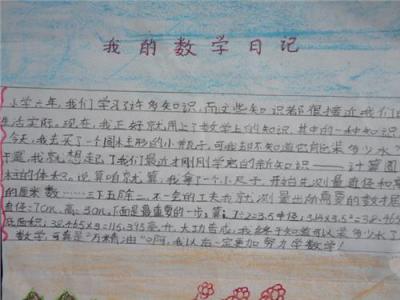 我的数学日记
小学六年,我们学习了许多知识,而这些知识都很接近我们的
生活实际。现在,我正好就用上了数学上的知识,其中的一种知识
今天,我去买了一个圆柱形的小瓶子,可我却不知道它能装多少水?
于是,我就想起了我们最近才刚刚学完的新知识——计算圆
柱的体积。说算咱就算,我拿了一个小尺子,开始先测量直径和高
的厘米数……三下五除二,不一会的工夫我就测量出所需要的数据
直径:7cm,高:3cm,下面是最重要的一步:算,7÷2=3.5 半径,3.14×3.5²=38.465
底面积,38.465×3=115.395毫升,大功告成,我终于知道可以装多少水了
数学,可真是"万精油"啊,我以后一定更加努力学数学!